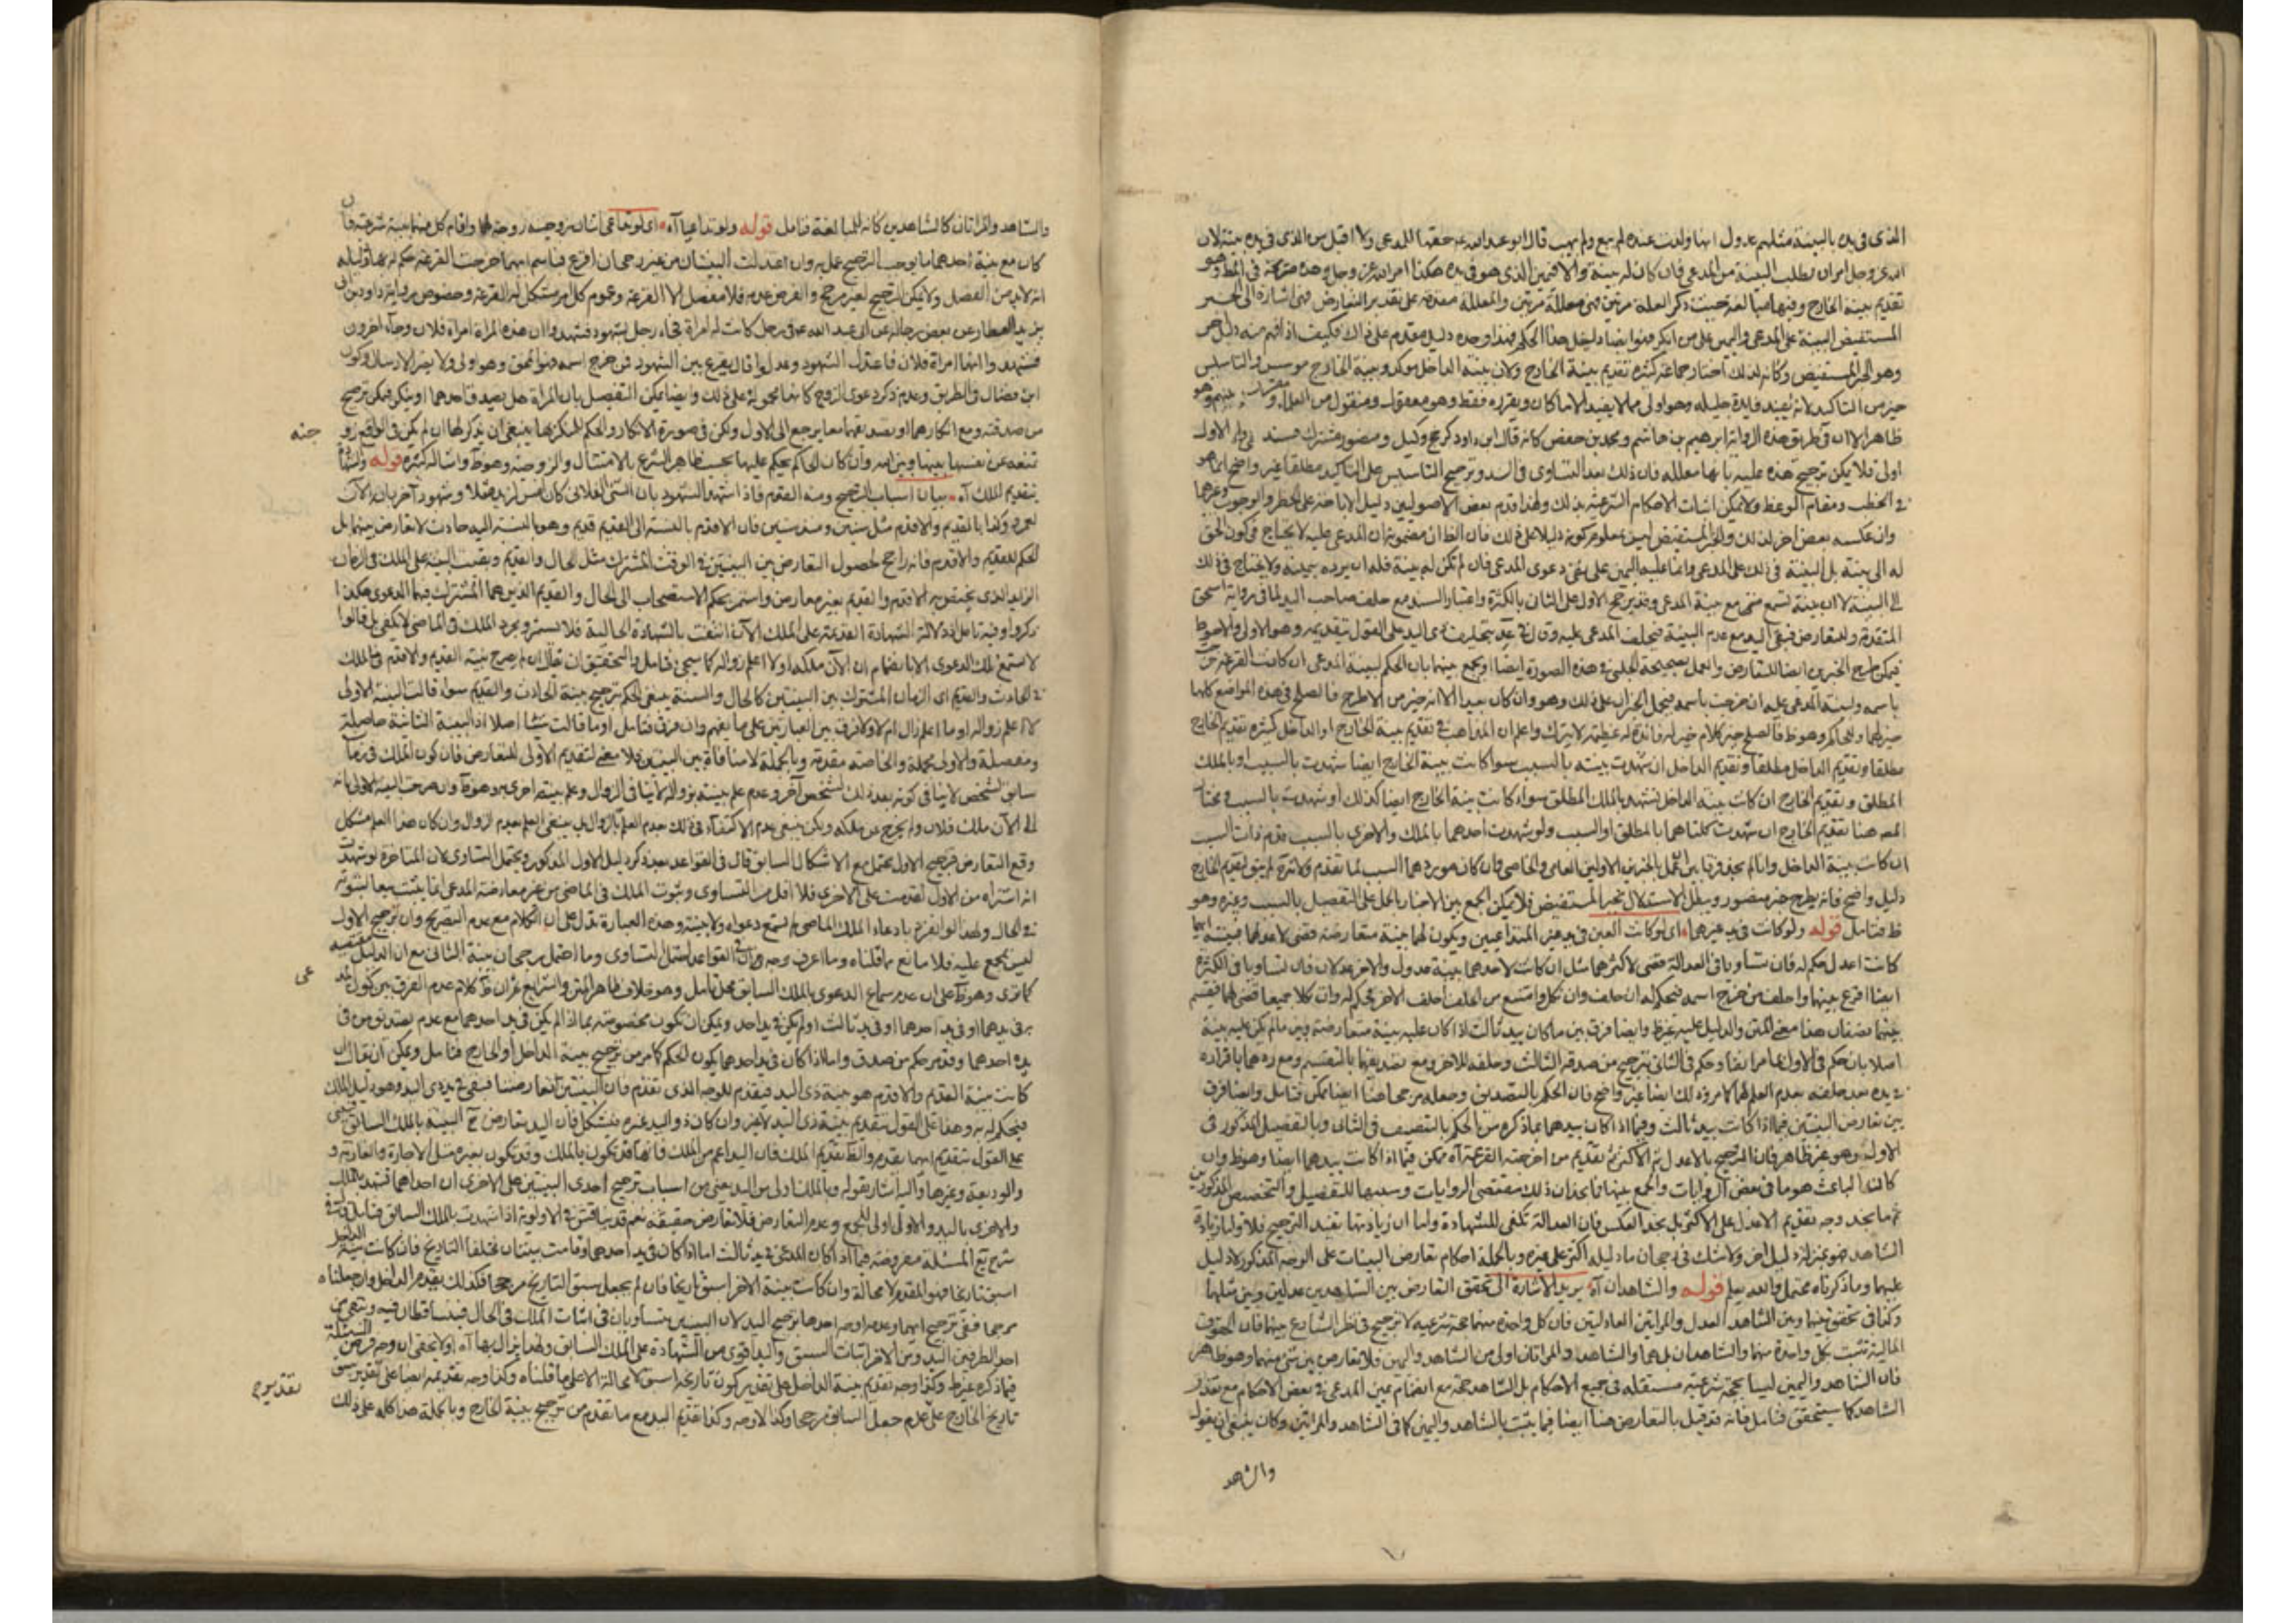 الذى فى يده بالبينة مثلهم عدول انها ولدت عنده لم يبع ولم يهب قال ابو عبد الله عه حقها للمدعى ولا اقبل من الذى فى يده بينة لان
الله عز وجل امر ان يطلب البينة من المدعى فان كان له بينة والا فيمين الذى هو فى يده هكذا امر الله عز وجل وهذه صريحة فى المط وهو
تقديم بينة الخارج وفيها مبالغة حيث ذكر العلة مرتين فهى معللة مرتين والمعللة مقدمة على تقدير التعارض فهى اشارة الى الخبر
المستفيض البينة على المدعى واليمين على من انكر فهو ايضا دليل هذا الحكم فهذا وحده دليل مقدم على ذاك فكيف اذا فهم منه دليل اخر
وهو الخبر المستفيض وكانه لذلك اختار جماعة كثيرة تقديم بينة الخارج ولان بينة الداخل موكد وبينة الخارج موسس والتاسيس
خير من التاكيد لانه يفيد فايدة جليلة وهو اولى مما لا يفيد الا ما كان ويقرره فقط وهو معقول ومنقول من العلماء
ظاهر الا ان فى طريق هذه الرواية ابراهيم بن هاشم ومحمد بن حفص كانه قال ابن داود كرخ وكيل ومنصور مشترك الاول
اولى فلا يمكن ترجيح هذه عليه بانها معللة فان ذلك بعد التساوى فى السند وترجيح التاسيس على التاكيد مطلقا غير واضح انما هو
فى الخطب ومقام الوعظ ولا يمكن اثبات الاحكام الشرعية بذلك ولهذا قدم بعض الاصوليين دليل الاباحة على الحظر والوجوب وغيرهما
وان عكسه بعض اخر لذلك والخبر المستفيض ليس بمعلوم كونه دليلا على ذلك فان الظ ان مضمونه ان المدعى عليه لا يحتاج فى كون الحق
له الى بينة بل البينة فى ذلك على المدعى وانما عليه اليمين على نفى دعوى المدعى فان لم تكن له بينة فله ان يرده بيمينه ولا يحتاج فى ذلك
الى البينة لا ان بينة تسمع منه مع بينة المدعى وقد يرجح الاول على الثانى بالكثرة واعتبار السند مع حلف صاحب اليد لما فى رواية اسحق
المتقدمة وللتعارض فبقى اليد مع عدم البينة فيحلف المدعى عليه وقال فى عد يتحلف ذى اليد على القول بتقديمه وهو الاولى والاحوط
فيمكن طرح الخبرين ايضا للتعارض والعمل بصحيحة الحلبى فى هذه الصورة ايضا او يجمع بينهما بان الحكم لبينة المدعى ان كانت القرعة خرجت
باسمه ولبينة المدعى عليه ان خرجت باسمه فيحمل الخبران على ذلك وهو وان كان بعيدا الا انه خير من الاطراح فالصلح فى هذه المواضع كلها
خير لهما وللحاكم وهو ظ فالصلح خير كلام خير له فائدة له عظيمة لا يترك واعلم ان المذاهب فى تقديم بينة الخارج او الداخل كثيرة تقديم الخارج
مطلقا وتقديم الداخل مطلقا وتقديم الداخل ان شهدت بينته بالسبب سوا كانت بينة الخارج ايضا شهدت بالسبب او بالملك
المطلق وتقديم الخارج ان كانت بينة الداخل تشهد بالملك المطلق سواء كانت بينة الخارج ايضا كذلك او شهدت بالسبب
المص هنا تقديم الخارج ان شهدت كلتاهما بالمطلق او السبب ولو شهدت احدهما بالملك والاخرى بالسبب قدم ذات السبب
ان كانت بينة الداخل وانا لم نجد فرقا بين العمل بالخبرين الاولين العامى والخاصى وان كان موردهما السبب لما تقدم ولانه لم يبق لتقديم الخارج
دليل واضح فانه يطرح خبر منصور ويبطل الاستدلال بخبر المستفيض فلا يمكن الجمع بين الاخبار بالحمل على التفصيل بالسبب وغيره وهو
ظ فتامل قوله ولو كانت فى يد غيرهما اى لو كانت العين فى يد غير المتداعيين ويكون لهما بينة متعارضة قضى لاعدلهما فبينة ايهما
كانت اعدل حكم له فان تساويا فى العدالة قضى لاكثرهما مثل ان كانت لاحدهما بينة عدول والاخر عدلان فان تساويا فى الكثرة
ايضا اقرع بينهما واحلف من خرج اسمه فيحكم له ان حلف وان نكل وامتنع من الحلف احلف الاخر يحكم له وان نكلا جميعا قضى لهما فقسم
بينهما نصفان هذا معنى المتن والدليل عليه غير ظ وايضا فرق بين ما كان بيد ثالث اذا كان عليه بينة متعارضة وبين ما لم يكن عليه بينة
اصلا بان حكم فى الاول بما مر ايضا وحكم فى الثانى بترجيح من صدقه الثالث وحلفه للاخر ومع تصديقهما بالتقسيم ومع ردهما باقراره
فى يده بعد حلفه بعدم العلم لهما كما مر وذلك ايضا غير واضح فان الحكم بالتصديق وجعله مرجحا هنا ايضا ممكن فتامل وايضا فرق
بين تعارض البينتين فيما اذا كانت بيد ثالث وفيما اذا كان بيدهما بما ذكره من الحكم بالتنصيف فى الثانى وبالتفصيل المذكور فى
الاول وهو غير ظاهر فان الترجيح بالاعدل ثم الاكثر ثم تقديم من اخرجته القرعة آه ممكن فيما اذا كانت بيدهما ايضا وهو ظ وان
كان الباعث هو ما فى بعض الروايات والجمع بينها فانجد ان ذلك مقتضى الروايات وسببها للتفصيل والتخصيص المذكورين
ثم ما نجد وجه تقديم الاعدل على الاكثر بل نجد العكس فان العدالة تكفى للشهادة واما ان زيادتها تفيد الترجيح فلا وليا زيادة
الشاهد فهو بمنزلة دليل اخر ولا شك فى رجحان ما دليله اكثر على غيره وبالجملة احكام تعارض البينات على الوجه المذكور لا دليل
عليها وما ذكرناه محتمل والله يعلم قوله والشاهدان آه يريد الاشارة الى تحقق التعارض بين الشاهدين عدلين وبين مثلهما
وكذا فى تحقق بينهما وبين الشاهد العدل والمراتين العادلتين فان كل واحدة منهما حجة شرعية لا ترجيح فى نظر الشارع بينهما فان الحقوق
المالية تثبت بكل واحدة منهما والشاهدان بل هما والشاهد والمراتان اولى من الشاهد واليمين فلا تعارض بين شئ منهما وهو ظاهر
فان الشاهد واليمين ليسا بحجة شرعية مستقلة فى جميع الاحكام بل الشاهد حجة مع انضمام يمين المدعى فى بعض الاحكام مع تعذر
الشاهد كما سيتحقق فتامل فانه قد قيل بالتعارض هنا ايضا فيما يثبت بالشاهد واليمين كما فى الشاهد والمراتين وكان ينبغى ان يقول
والشاهد
والشاهد والمراتان كالشاهدين كانه للمبالغة فتامل قوله ولو تداعيا آه اى لو تداعى اثنان زوجية زوجة لهما واقام كل منهما بينة شرعية فان
كان مع بينة احدهما ما يوجب الترجيح عمل به وان اعتدلت البينتان من غير رجحان اقرع فباسم ايهما خرجت القرعة حكم له بها ودليله
انه لابد من الفصل ولا يمكن الترجيح لغير مرجح والفرض عدمه فلا مفصل الا القرعة وعموم كل امر مشكل له القرعة وخصوص رواية داود بن
يزيد العطار عن بعض رجاله عن ابى عبد الله عه فى رجل كانت له امراة فجاء رجل بشهود فشهدوا ان هذه المراة امراة فلان وجاء اخرون
فشهدوا انها امراة فلان فاعتدل الشهود وعدلوا قال يقرع بين الشهود فمن خرج اسمه فهو المحق وهو اولى ولا يضر الارسال وكون
ابن فضال فى الطريق وعدم ذكر دعوى الزوج كانها محمولة على ذلك وايضا يمكن التفصيل بان المراة هل يصدق احدهما او ينكر فيمكن ترجيح
من صدقته ومع انكارهما او تصديقهما معا يرجع الى الاول ولكن فى صورة الانكار والحكم للمنكر بها ينبغى ان يذكر لها ان لم يكن فى الواقع زو
جته
تمنعه عن نفسها بينها وبين الله وان كان الحاكم يحكم عليها بحسب ظاهر الشرع بالامتثال والزوجية وهو ظ وامثاله كثيرة قوله والشها
بتقديم الملك آه بيان اسباب الترجيح ومنه القدم فاذا شهد الشهود بان الشئ الفلانى كان امس لزيد مثلا وشهود آخر بان الآن
لعمرو وكذا بالقديم والاقدم مثل سنين ومذ سنتين فان الاقدم بالنسبة الى القديم قديم وهو بالنسبة اليه حادث لا تعارض بينهما بل
الحكم للقديم والاقدم فانه راجح لحصول التعارض بين البينتين فى الوقت المشترك مثل الحال والقديم وبقيت البينة على الملك فى الزمان
الزايد الذى يختص به الاقدم والقديم بغير معارض واستمر بحكم الاستصحاب الى الحال والقديم الذين هما المشترك فيهما الدعوى هكذا
ذكروا وفيه تامل اذ دلالة الشهادة القديمة على الملك الآن انتفت بالشهادة الحالية فلا يستمر ومجرد الملك فى الماضى لا يكفى بل قالوا
لا تسمع تلك الدعوى الا بانضمام ان الآن ملكه او لا اعلم زواله كما سيجئ فتامل والتحقيق ان يقال ان لم يصرح بينة القديم والاقدم بالملك
فى الحادث والقديم اى الزمان المشترك بين البينتين كالحال والسنة ينبغى الحكم بترجيح بينة الحادث والقديم سواء قالت البينة الاولى
لا اعلم زواله او ما اعلم زال ام لا ولا فرق بين العبارتين على ما يفهم وان فرق فتامل او ما قالت شيئا اصلا اذ البينة الثانية حاصلة
ومفصلة والاولى مجملة والخاصة مقدمة وبالجملة لا منافاة بين البينتين فلا معنى لتقديم الاولى للتعارض فان كون الملك فى زمان
سابق لشخص لا ينافى كونه بعد ذلك لشخص آخر وعدم علم بينته بزواله لا ينافى الزوال وعلم بينة اخرى به وهو ظ وان صرحت البينة الاولى بانه
الى الآن ملك فلان ولم يخرج عن ملكه ولكن ينبغى عدم الاكتفاء فى ذلك بعدم العلم بالزوال بل ينبغى العلم بعدم الزوال وان كان هذا العلم مشكل
وقع التعارض فترجيح الاول محتمل مع الاشكال السابق قال فى القواعد بعد ذكر دليل الاول المذكور ويحتمل التساوى لان المتاخرة لو شهدت
انه اشتراه من الاول لقدمت على الاخرى فلا اقل من التساوى وثبوت الملك فى الماضى من غير معارضة المدعى انما يثبت تبعا لثبوته
فى الحال ولهذا لو انفرد بادعاء الملك الماضى لم تسمع دعواه ولا بينة وهذه العبارة تدل على ان الكلام مع عدم التصريح وان ترجيح الاول
ليس بمجمع عليه فلا مانع مما قلناه وما اعرف وجه ان فى القواعد احتمل التساوى وما احتمل رجحان بينة الثانى مع ان الدليل يقتضيه
كما ترى وهو ظ على ان عدم سماع الدعوى بالملك السابق محل تامل وهو خلاف ظاهر المتن والشرايع ثم ان ظ كلام عدم الفرق بين كون المد
عى
به فى يدهما او فى يد احدهما او فى يد ثالث او لم يكن فى يد احد ويمكن ان يكون مخصوصة بما اذا لم يكن فى يد احدهما مع عدم تصديق من فى
يده احدهما وقد مر حكم من صدق واما اذا كان فى يد احدهما يكون الحكم كما مر من ترجيح بينة الداخل او الخارج فتامل ويمكن ان يقال ان
كانت بينة القديم والاقدم هو بينة ذى اليد فيقدم للوجه الذى تقدم فان البينتين تعارضتا فبقى فى يد ذى اليد وهو دليل الملك
فيحكم له به وهذا على القول بتقديم بينة ذى اليد لا غير وان كان ذو اليد غيره فيشكل فان اليد تعارض ح البينة بالملك السابق يبنى
على القول بتقديم ايهما يقدم والظ تقديم الملك فان اليد اعم من الملك فانها قد تكون بالملك وقد تكون بغيره مثل الاجارة والعارية و
والوديعة وغيرها واليه اشار بقوله وبالملك اولى من اليد يعنى من اسباب ترجيح احدى البينتين على الاخرى ان احداهما تشهد بالملك
والاخرى باليد والاولى اولى للجمع وعدم التعارض فلا تعارض حقيقة نعم قد يناقش فى الاولوية اذا شهدت بالملك السابق فتامل قال فى
شرح يع المسئلة مفروضة فيما اذا كان المدعى فى يد ثالث اما اذا كان فى يد احدهما وقامت بينتان مختلفا التاريخ فان كانت بينة الداخل
اسبق تاريخا فهو المقدم لا محالة وان كانت بينة الاخر اسبق تاريخا فان لم يجعل سبق التاريخ مرجحا فكذلك يقدم الداخل وان جعلناه
مرجحا ففى ترجيح ايهما وعدمه اوجه احدها ترجيح اليد لان البينتين متساويان فى اثبات الملك فى الحال فيتساقطان فيه ويبقى من
احد الطرفين اليد ومن الاخر اثبات السبق واليد اقوى من الشهادة على الملك السابق ولهذا لا يزال بها آه ولا يخفى ان وجه فرض المسئلة
فيما ذكره غير ظ وكذا وجه تقديم بينة الداخل على تقدير كون تاريخه اسبق لا محالة الا على ما قلناه وكذا وجه تقديمه ايضا على تقدير سبق
تقديم
تاريخ الخارج على عدم جعل السابق مرجحا وكذا الاوجه وكذا تقديم اليد مع ما تقدم من ترجيح بينة الخارج وبالجملة هذا كله على ذلك